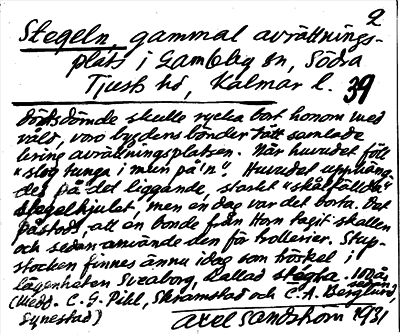 2
Stegeln, gammal avrättnings-
plats i Gamleby sn, Södra
Tjust hd, Kalmar l.
39
dödsdömde skulle rycka bort honom med
våld, voro bygdens bönder tätt samlade
kring avrättningsplatsen. När huvudet föll
"slog tunga i mun på'n". Huvudet upphäng-
des på det liggande, starkt "skålfällda"
stegelhjulet, men en dag var det borta. Det
påstods, att en bonde från Horn tagit skallen
och sedan använde den för trollerier. Stup-
stocken finnes ännu idag som tröskel i
lägenheten Svzaborg, kallad stegha. 100 år
sedan
(Medd. C. G. Pihl, Skramstad och C. A. Berglund,
Synestad)
Axel Sandström 1931